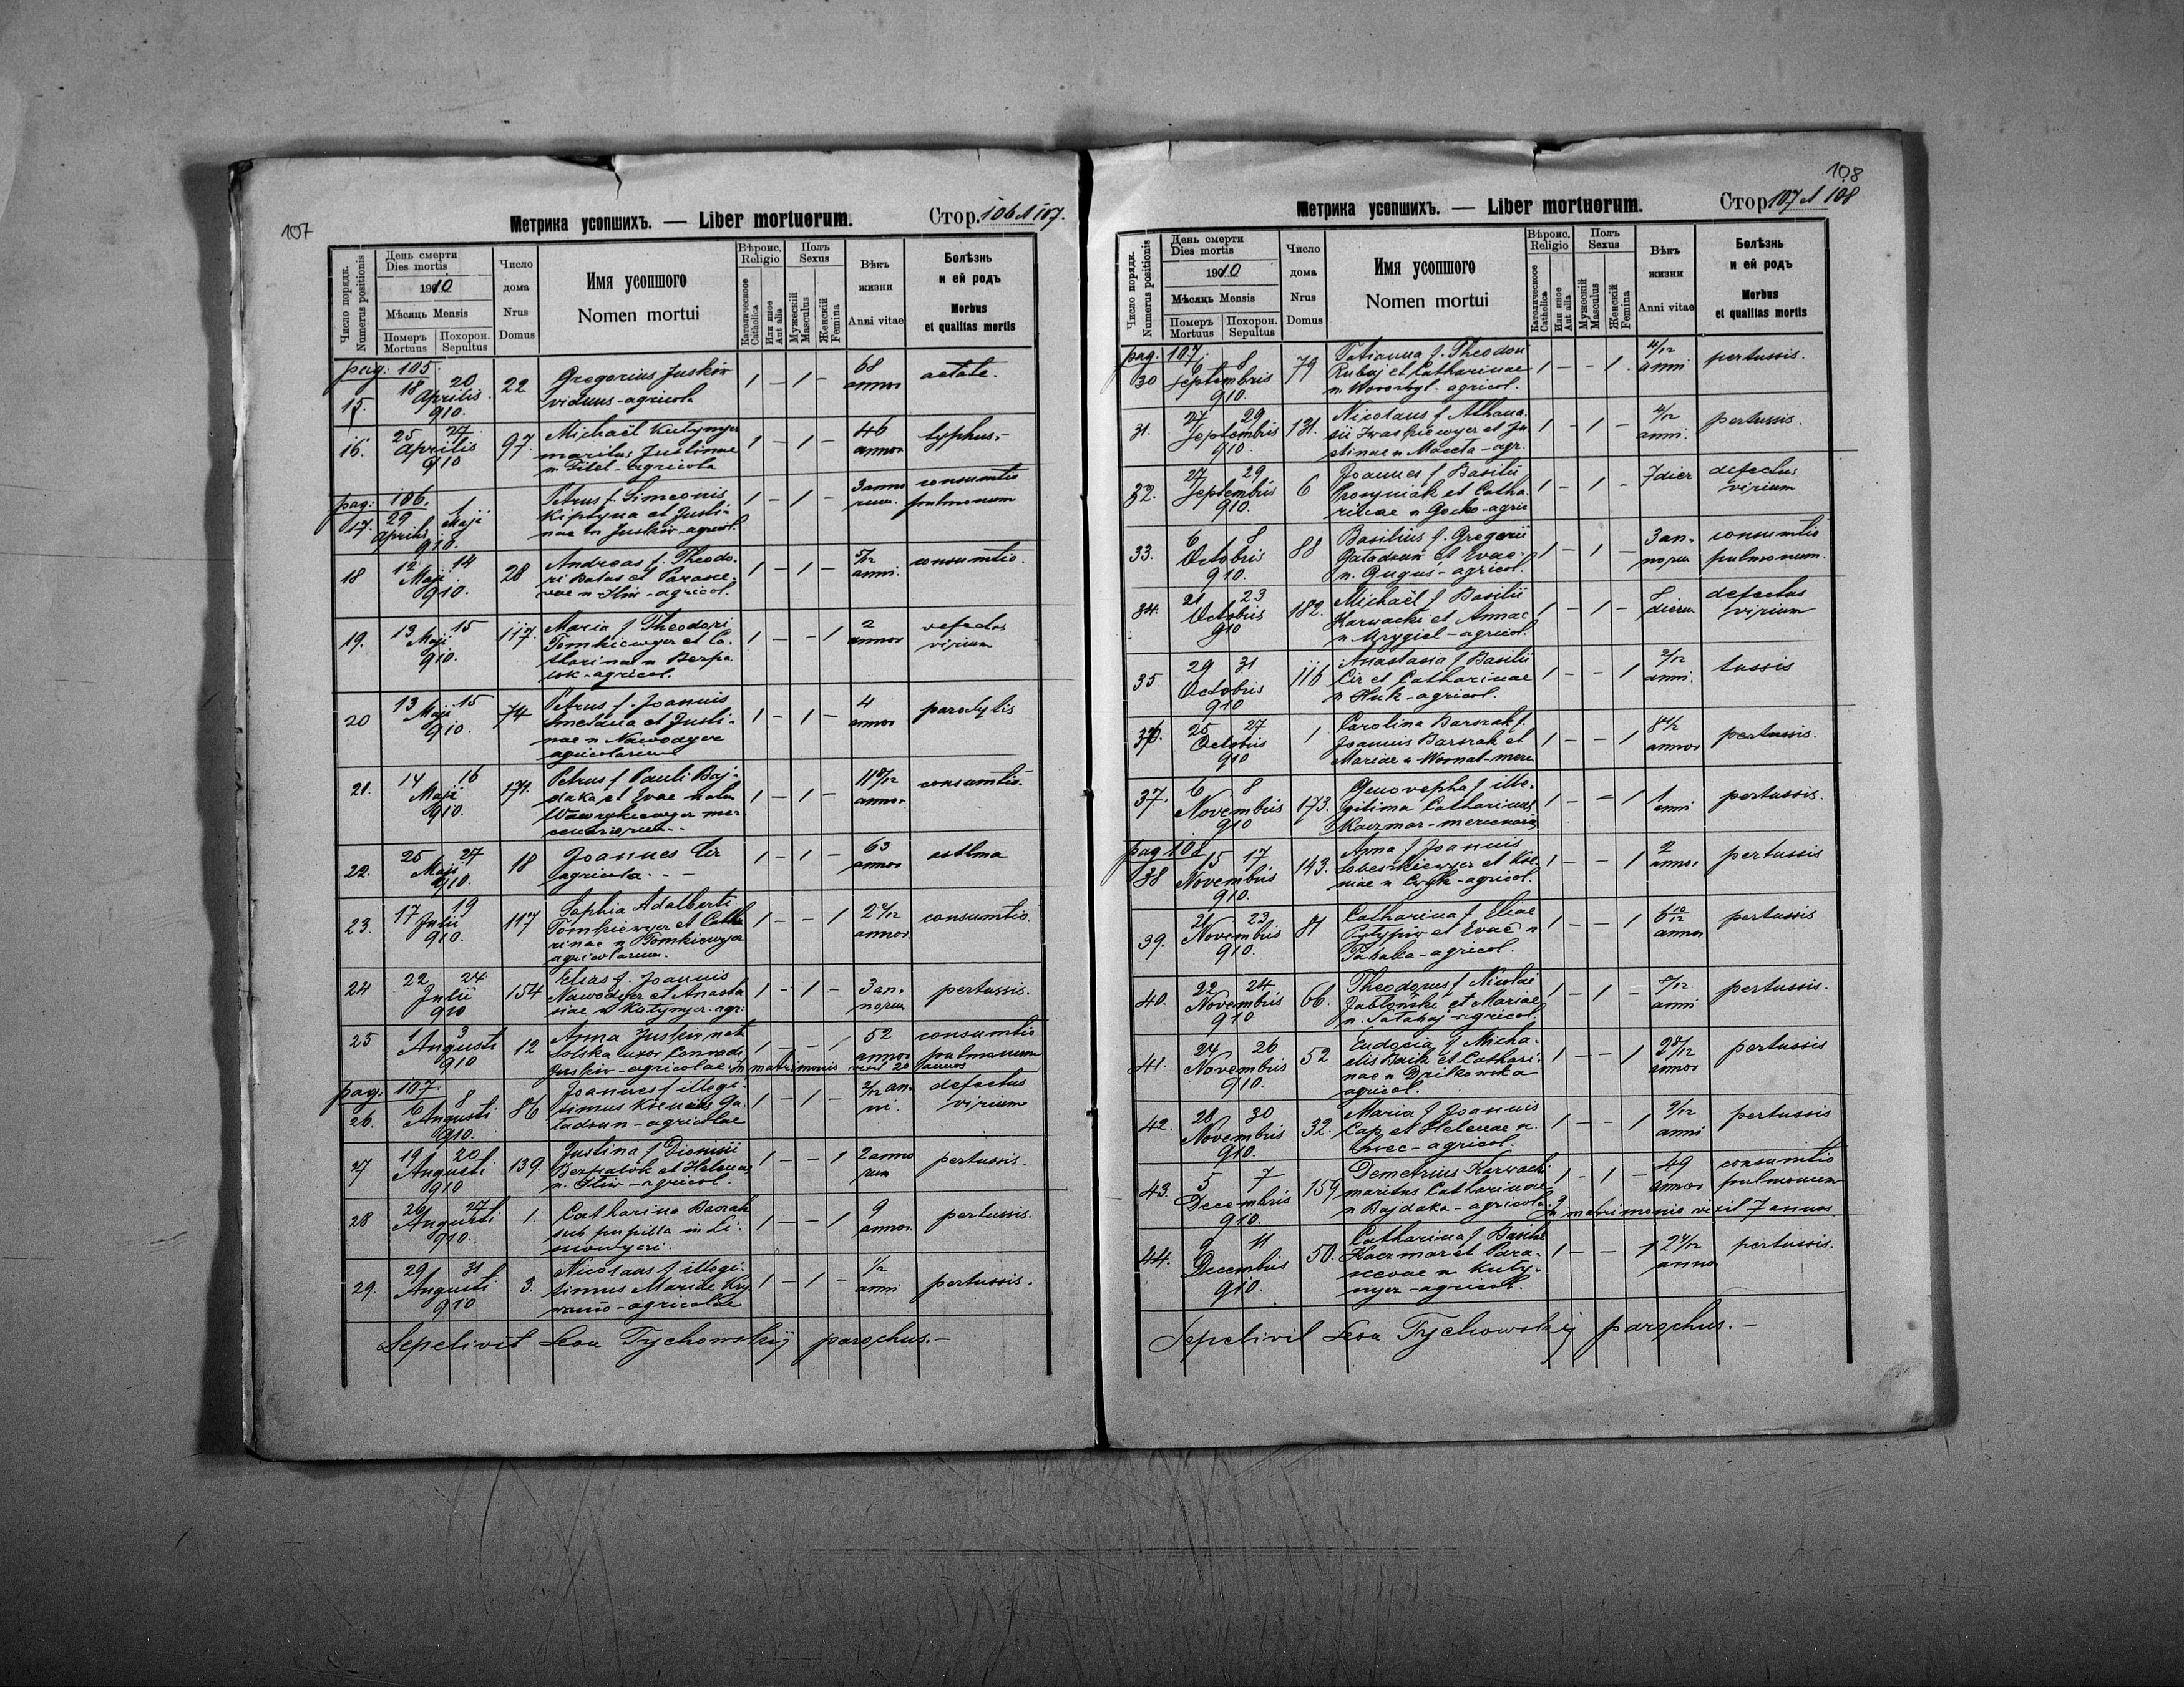 107
Метрика усопшихъ. — Liber mortuorum.
Стор. 106 et 107.
Число порядк.
Numerus positionis
День смерти
Dies mortis
1910
Мѣсяць Mensis
Померъ
Mortuus
Похорон.
Sepultus
Число
дома
Nrus
Domus
Имя усопшого
Nomen mortui
Вѣроис.
Religio
Католическое
Catholica
Или иное
Aut alia
Полъ
Sexus
Мужескій
Masculus
Женскій
Femina
Вѣкъ
жизни
Anni vitae
Болѣзнь
и ей родъ
Morbus
et qualitas mortis
pag: 105.
15. 18 20 Aprilis 910. 22 Gregorius Juskiw
viduus - agricola
1 — 1 — 68 annos aetate.
16. 25 27 Aprilis 910 97. Michaël Kutynyer
maritus Justinae
n Titel - agricola
1 — 1 — 46 annos typhus. -
pag: 106.
17. 29 Aprilis 1 Maji 910. Petrus f. Simeonis
Kiptyna et Justi-
nae n Juskiw - agricol.
1 — 1 — 3 anno
rum. consumtio
pulmonum
18 12 14 Maji 910. 28 Andreas f. Theodo-
ri Batas et Parasce-
vae n Iliw - agricol.
1 — 1 — 5/12
anni. consumtio.
19. 13 15 Maji 910. 117. Maria f Theodori
Tomkiewyer et Ca-
tharinae n Berpa
lok - agricol.
1 — — 1 2
annos defectus
virium
20 13 15 Maji 910. 74 Petrus f. Joannis
Smetana et Justi-
nae n Nawodyer
agricolarum
1 — 1 — 4
annos paralytis
21. 14 16 Maji 910. 171. Petrus f Pauli Baj-
daka et Evae natae
Wawrykiewyer mer
cenariorum - -
1 — 1 — 11 8/12
annos. consumtio.
22. 25 27 Maji 910. 18 Joannes Cir
agricola. - —
1 — 1 — 63
annos asthma
23. 17 19 Julii 910. 117 Sophia Adalberti
Tomkiewyer et Catha
rinae n Tomkiewyer
agricolarum.
1 — — 1 2 4/12
annos. consumtio.
24 22 24 Julii 910 154 Elias f. Joannis
Nawodyer et Anasta
siae n Kutynyer - agr:
1 — 1 — 3 an-
norum pertussis.
25 1 3 Augusti 910 12 Anna Juskiw nata
Solska uxor Conradi
Juskiw - agricolae. In matrimonio vixit 20 annos
1 — — 1 52
annos consumtio
pulmonum
pag: 107.
26. 6 8 Augusti 910. 86 Joannes f illegi-
timus Kseniae Ga-
tadzun - agricolae
1 — 1 — 2/12 an-
ni. defectus
virium
27 19 20 Augusti 910 139. Justina f Dionisii
Berpalok et Helenae
n. Iliw - agricol.
1 — — 1 2 anno
rum pertussis.
28 26 27 Augusti 910. 1. Catharina Barszak
sub pupilla in Li-
mowyeri.
1 — — 1 9
annos. pertussis.
29. 29 31 Augusti 910 3. Nicolaus f illegi-
timus Mariae Kry
waniō - agricolae
1 — 1 — 1/12
anni pertussis.
Sepelivit Leon Tychowskij parochus. —
108
Метрика усопшихъ. — Liber mortuorum.
Стор. 107 et 108
Число порядк.
Numerus positionis
День смерти
Dies mortis
1910
Мѣсяць Mensis
Померъ
Mortuus
Похорон.
Sepultus
Число
дома
Nrus
Domus
Имя усопшого
Nomen mortui
Вѣроис.
Religio
Католическое
Catholica
Или иное
Aut alia
Полъ
Sexus
Мужескій
Masculus
Женскій
Femina
Вѣкъ
жизни
Anni vitae
Болѣзнь
и ей родъ
Morbus
et qualitas mortis
pag. 107.
30 6 8 Septembris 910. 79 Tatianna f. Theodori
Rubaj et Catharinae
n Worobyl. agricol.
1 — — 1. 4/12
anni pertussis.
31. 27 29 Septembris 910. 131. Nicolaus f Athana-
sii Iwaskiewyer et Ju
stinae n Maceta - agr.
1 — 1 — 4/12
anni. pertussis.
32. 27 29 Septembris 910. 6 Joannes f Basilii
Prosyniak et Catha-
rinae n Gocko - agric
1 — 1 — 7 dier defectus
virium
33. 6 8 Octobris 910. 88 Basilius f Gregorii
Gatadzun et Evae.
n. Guguś - agricol.
1 — 1 — 3 an-
norum consumtio
pulmonum.
34. 21 23 Octobris 910 182. Michaël f Basilii
Karwacki et Annae
n Mrygiel - agricol.
1 — 1 — 8
dierum defectus
virium
35 29 31 Octobris 910 116 Anastasia f Basilii
Cir et Catharinae
n Huk - agricol.
1 — — 1 2/12
anni. tussis
36. 25 27 Octobris 910 1 Carolina Barszak f.
Joannis Barszak et
Mariae n Woonat - merc
1 — — 1 8 4/12
annos pertussis.
37. 6 8 Novembris 910 173. Genovepha f ille-
gitima Catharinae
Kaczmar - mercenariae
1 — — 1 1
anni pertussis.
pag 108
38 15 17 Novembris 910. 143. Anna f Joannis
Sobeskiewyer et Kse-
niae n Cwyk - agricol.
1 — — 1 2
annos pertussis
39. 21 23 Novembris 910. 81 Catharina f Eliae
Pytypiw et Evae n
Tabaka - agricol.
1 — — 1 6 10/12
annos pertussis
40. 22 24 Novembris 910 66. Theodorus f Nicolai
Jabłoński et Mariae
n. Satahaj - agricol.
1 — 1 — 8/12
anni pertussis.
41. 24 26 Novembris 910. 52 Eudocia f Micha-
elis Baik et Cathari-
nae n Dzikowska
agricol.
1 — — 1 2 8/12
annos pertussis
42. 28 30 Novembris 910. 32. Maria f Joannis
Cap et Helenae n.
Swec - agricol.
1 — — 1 9/12
anni pertussis
43. 5 7 Decembris 910. 159 Demetrius Karwacki
maritus Catharinae
n Bajdaka - agricola. In matrimonio vixit 7 annos
1 — 1 — 49
annos consumtio
pulmonum
44. 9 11 Decembris 910. 50. Catharina f Basilii
Kaczmar et Para-
scevae n Kuty-
nyer - agricol.
1 — — 1 2 4/12
annos pertussis.
Sepelivit Leon Tychowskij parochus. —